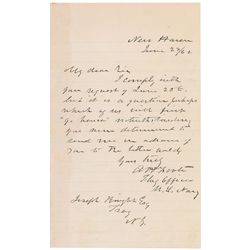 New Haven
June 27/62
My dear Sir
I comply with
your request of June 20th
but it is a question perhaps
which of us will first
"go hence" notwithstanding
you seem determined to
send me in advance of
you to the better world
Yours truly
A H Foote
Flag Officer
U.S. Navy
Joseph Knight Esq
Troy
N.Y.